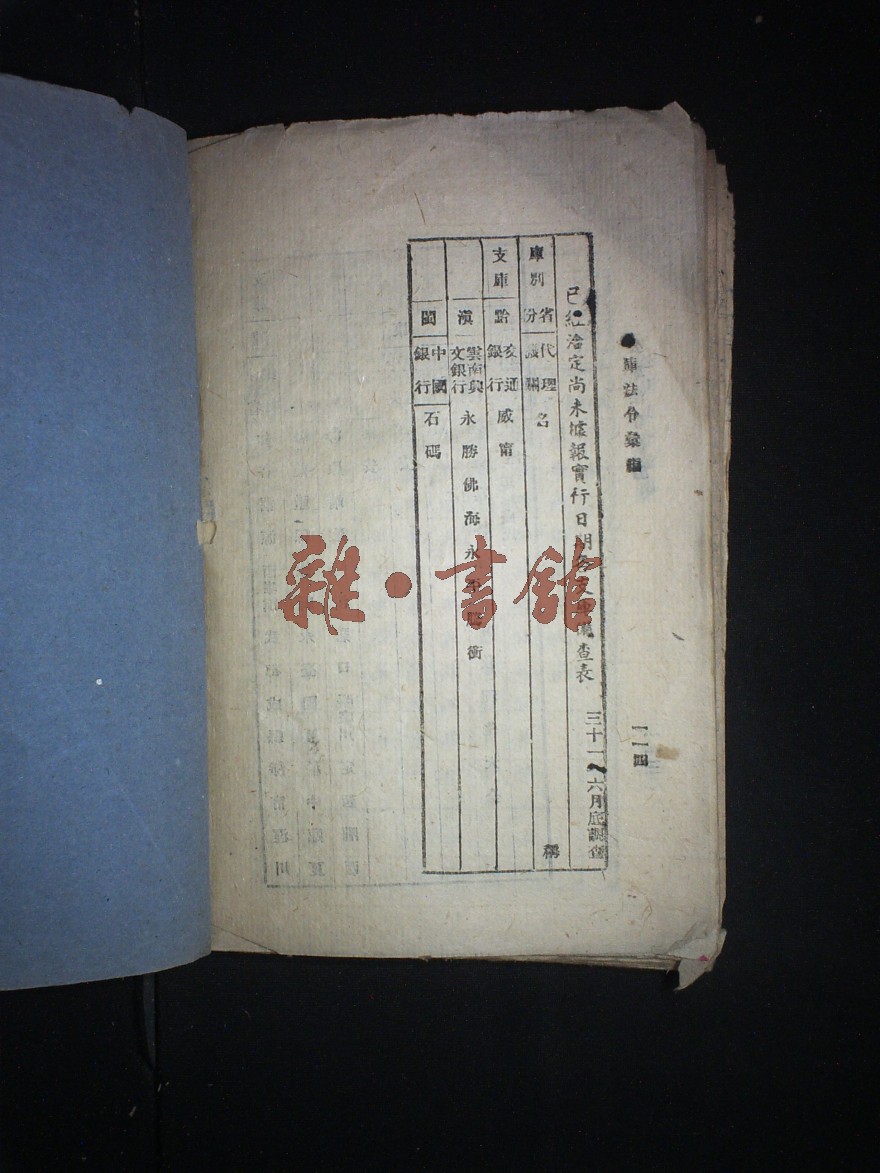 庫法令彙編
一一四
已經洽定尚未據報實行日期 查表
三十一 六月底調查
庫別 省份 代理 名 稱
支庫 黔 交通銀行 威甯
滇 雲南興文銀行 永勝 佛海 永 衝
閩 中國銀行 石碼
雜·書館